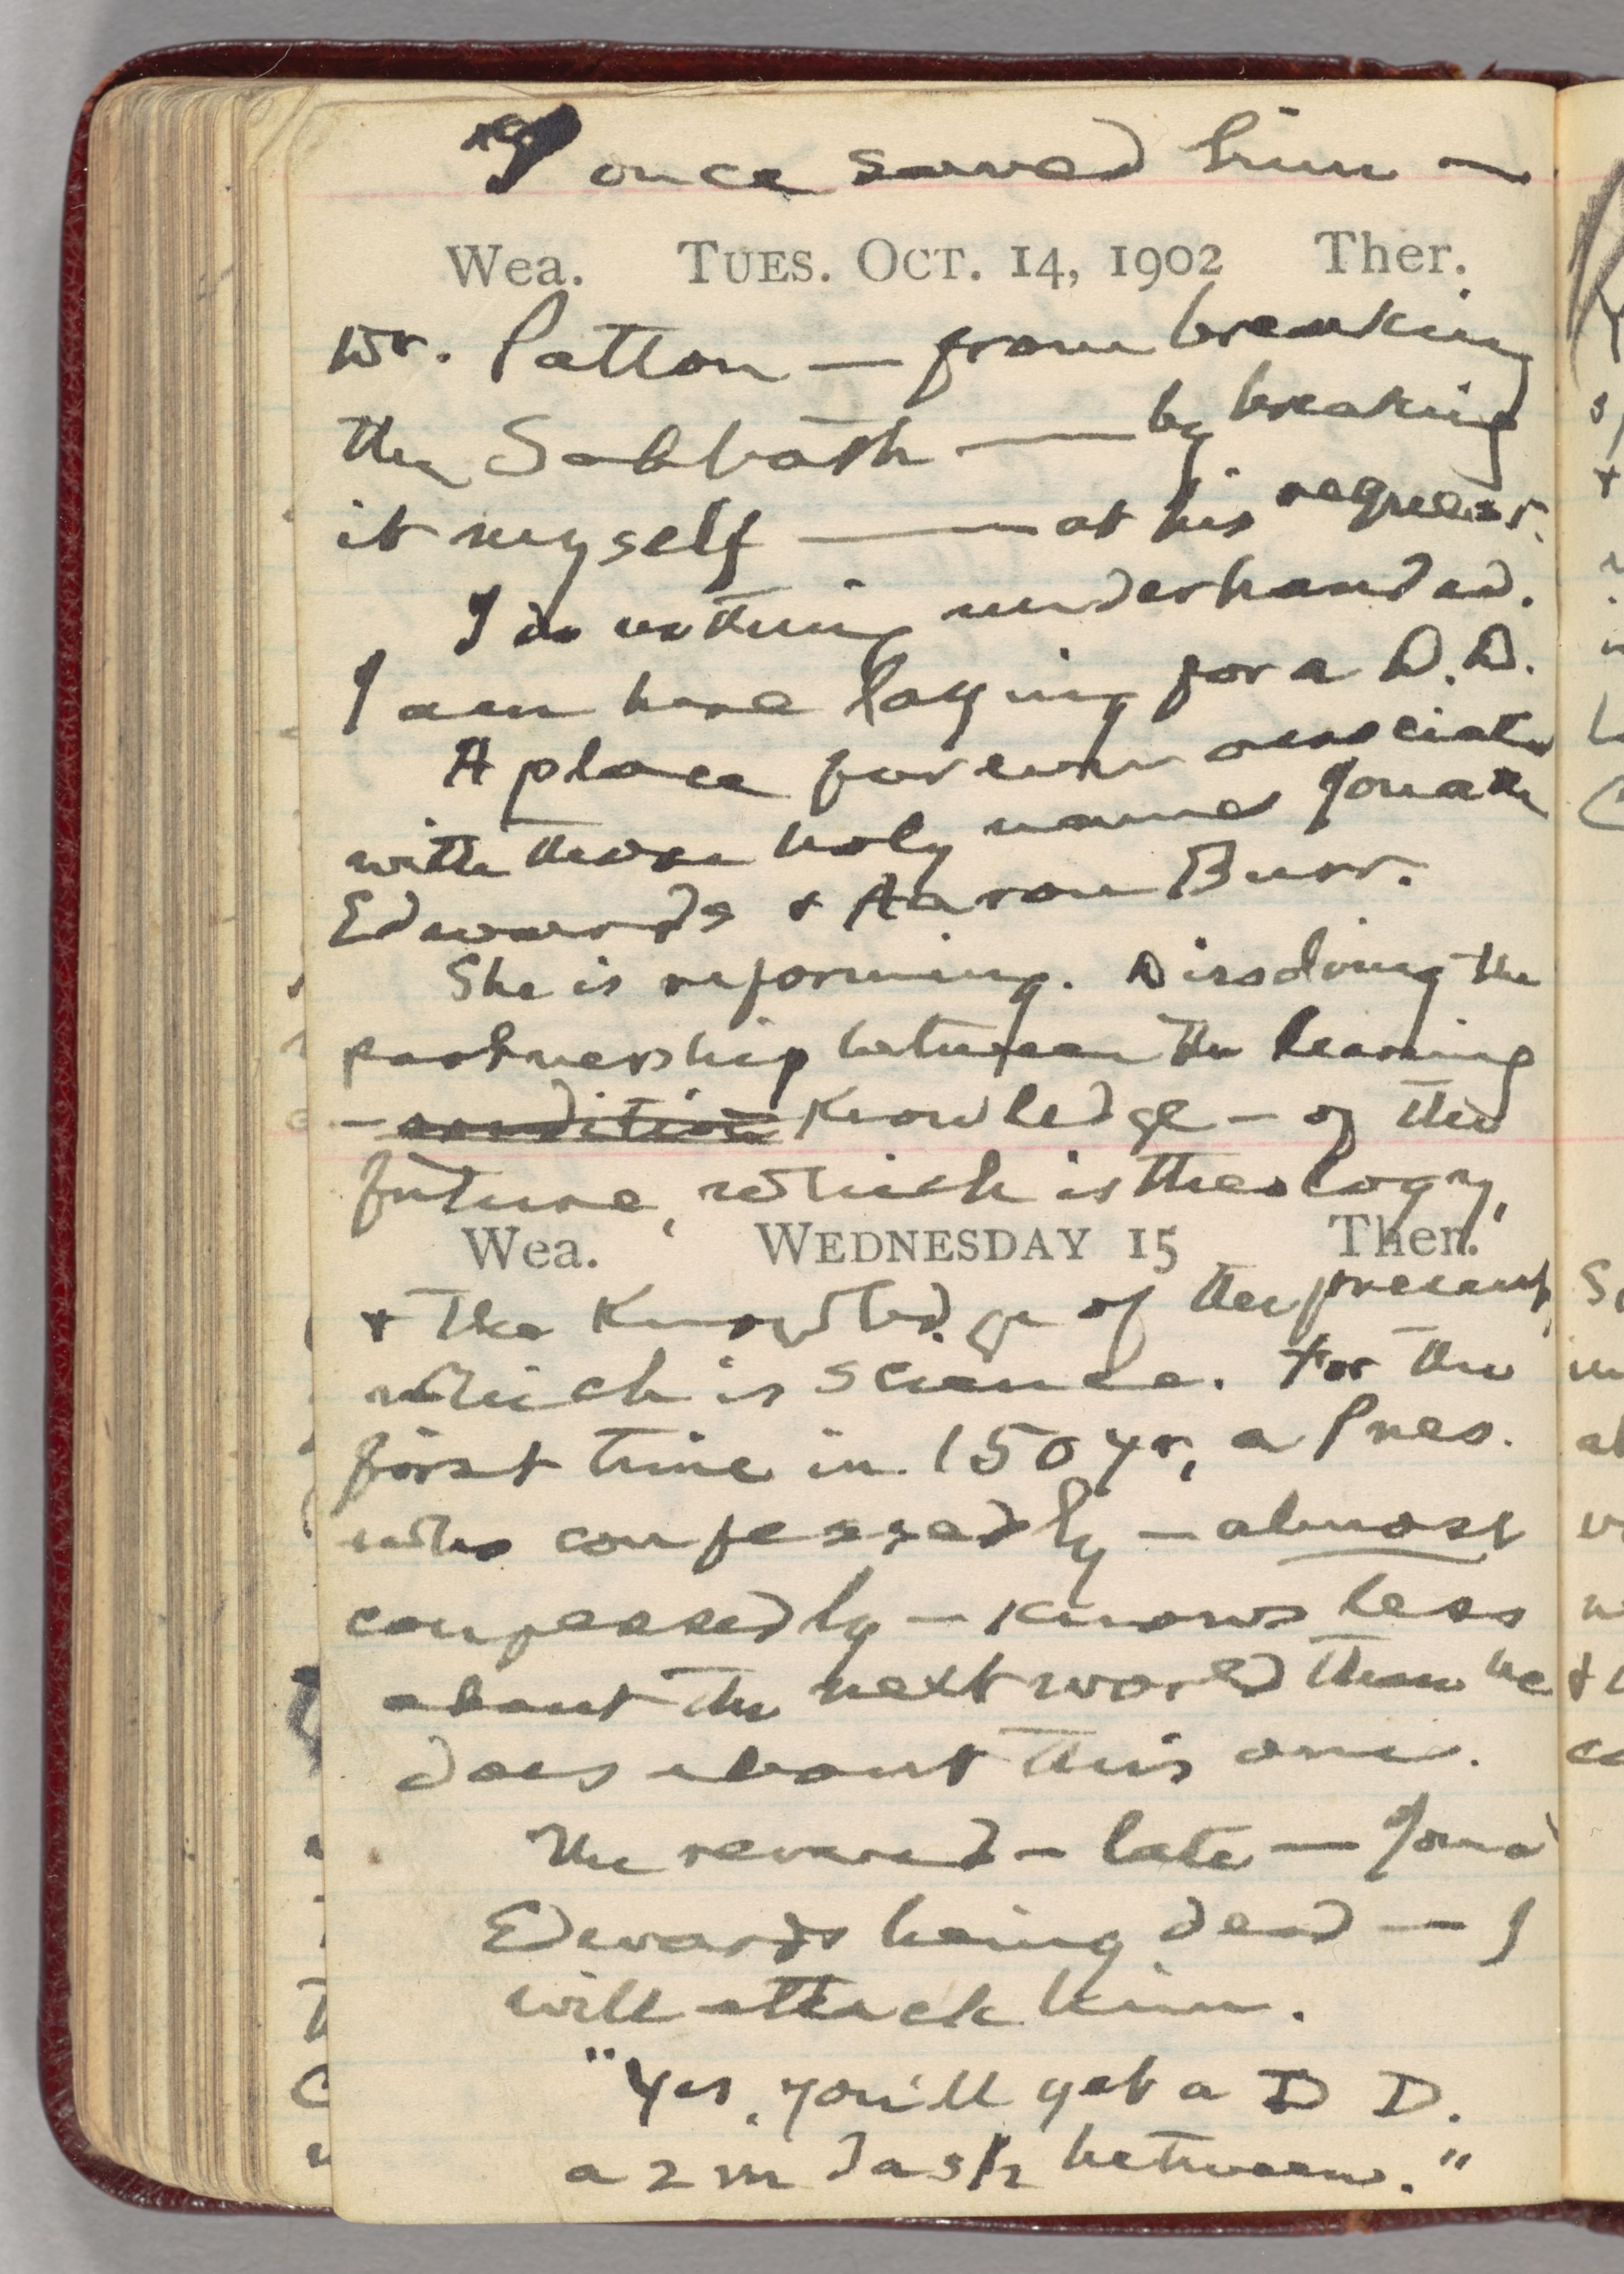 I once saved him —
Wea. TUES. OCT. 14, 1902 Ther.
Dr. Patton — from breaking
the Sabbath — by breaking
it myself — at his request.
I do nothing underhanded.
I am here laying for a D.D.
A place forever associated
with those holy names Jonath
Edwards & Aaron Burr.
She is reforming. Dissolving the
partnership between the learning
— erudition Knowledge — of the
future, which is theology,
Wea. WEDNESDAY 15 Ther.
& the Knowledge of the present,
which is science. For the
first time in 150 yr, a Pres.
who confessedly — almost
confessedly — knows less
about the next world than he
does about this one.
The revered — late — Jona
Edwards being dead — I
will attack him.
"Yes, you'll get a D D.
a 2 m dash between."